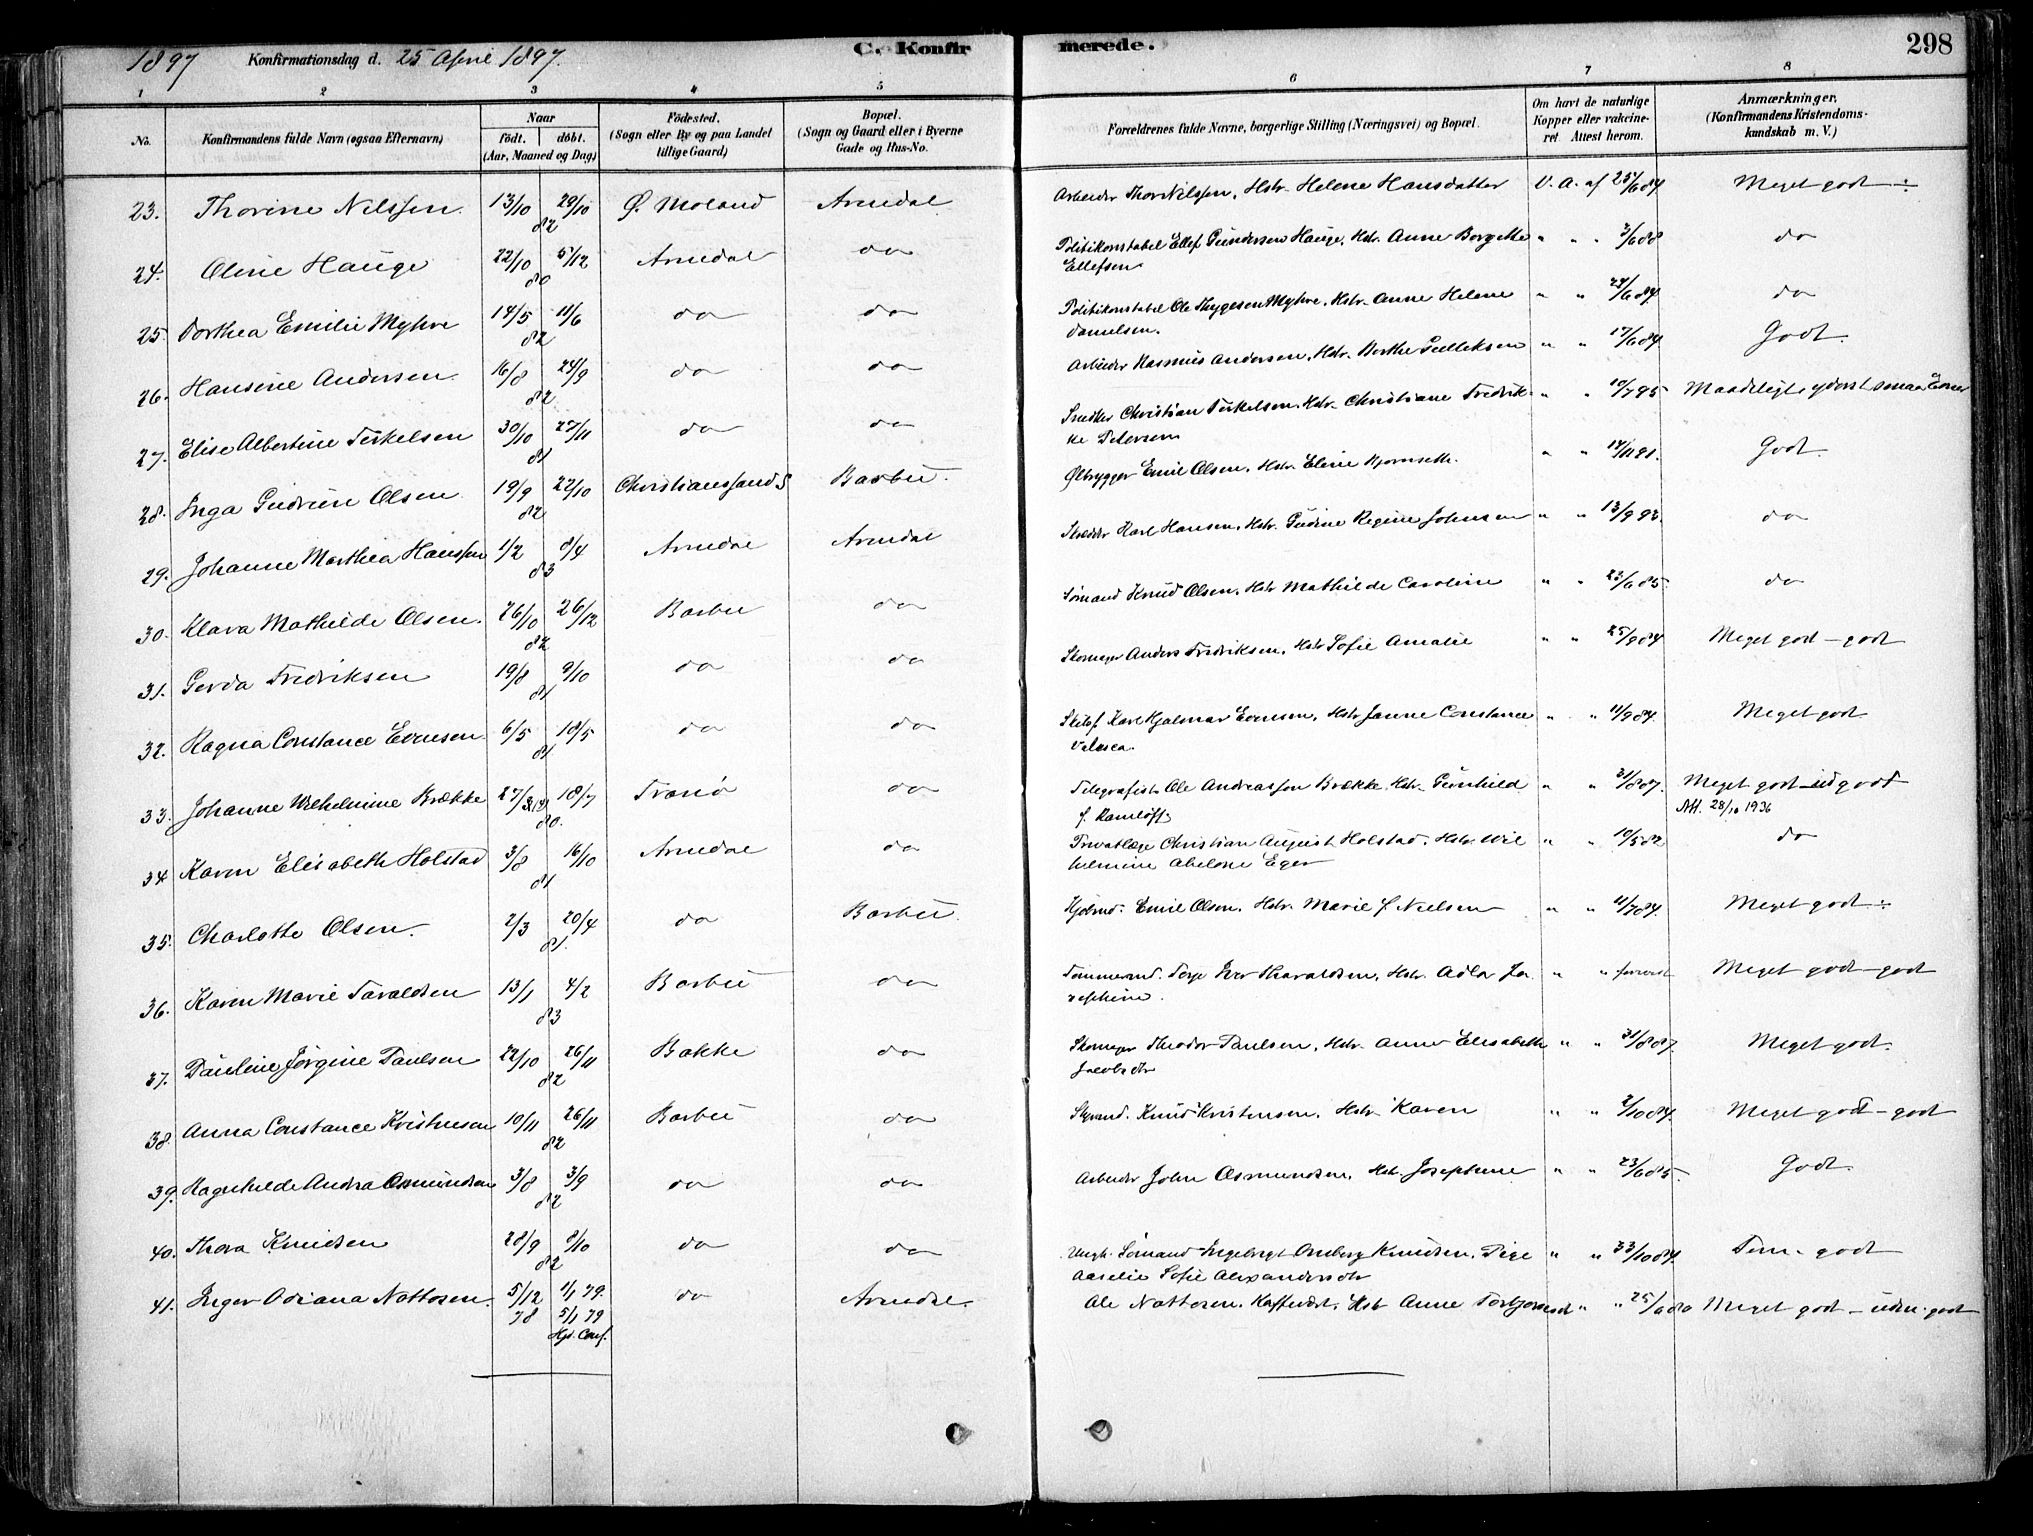 1897 Konfirmationsdag d. 25 April 1897. C. Konfirmerede. 298
1 2 3 4 5 6 7 8
No. Konfirmandens fulde Navn (ogsaa Efternavn) Naar født. døbt. (Aar, Maaned og Dag) Fødested. (Sogn eller By og paa Landet tillige Gaard) Bopæl. (Sogn og Gaard eller i Byerne Gade og Hus-No. Forældrenes fulde Navne, borgerlige Stilling (Næringsvei) og Bopæl. Om havt de naturlige Kopper eller vakcineret Attest herom. Anmærkninger. (Konfirmandens Kristendomskundskab m. V.)
23. Thorine Nilssen. 13/10 29/10 82 Ø. Moland Arendal Arbeider Thor Nilssen, Hstr. Helene Hansdatter V. A. af 25/6 84 Meget godt
24. Oline Hauge 22/10 5/12 80 Arendal do Politikonstabel Ellef Gundersen Hauge, Hstr. Anne Borgette Ellefsen " " 3/6 88 do
25. Dorthea Emilie Myhre 14/5 11/6 82 do do Politikonstabel Ole Thygesen Myhre, Hstr. Anne Helene Danielsen. " " 24/6 84 do
26. Hansine Andersen. 16/8 24/9 82 do do Arbeider Rasmus Andersen, Hstr. Berthe Gulleksen " " 17/6 84 Godt.
27. Elise Albertine Terkelsen 30/10 27/11 81 do do Snedker Christian Terkelsen, Hstr. Christiane Fredrikke Petersen " " 10/7 95 Maadeligt, yderst smaa Evner
28. Inga Gudrun Olsen 19/9 22/10 82 Christianssand S Barbu. Ølbrygger Emil Olsen, Hstr. Eline Bjornseth. " " 14/11 91. Godt.
29. Johanne Marthea Hanssen 1/2 8/4 83 Arendal Arendal Skrædder Karl Hansen, Hstr. Gudine Regine Johnsen " " 13/9 93. do
30. Klara Mathilde Olsen. 26/10 26/12 82 Barbu do Sømand Knud Olsen, Hstr Mathilde Caroline " " 23/6 85. do
31. Gerda Fredriksen 19/8 9/10 81 do do Skomager Anders Fredriksen, Hstr Sofie Amalie " " 25/9 84 Meget godt - godt
32. Ragna Constance Evensen 6/5 18/5 81 do do Skibsf. Karl Hjalmar Evensen, Hstr Janne Constance " " 11/9 84. Meget godt
33. Johanne Wilhelmine Brække 18/7 80. Tranø do Telegrafist Ole Andreassen Brække, Hstr. Gunhild f. " " 31/8 87. Meget godt - udgodt
Att. 28/10 1936
34 Karen Elisabeth Holstad 3/8 16/10 81 Arendal do Privatlæge Christian August Holstad, Hstr. Wilhelmine Abelone Eger " " 10/5 82 do
35. Charlotte Olsen. 2/3 20/4 81. do Barbu. Emil Olsen, Hstr. Marie f. Nielsen " " 11/7 84. Meget godt
36. Karen Marie Taraldsen 13/1 4/2 83 Barbu do Tømmermd. Terje Iver Tharaldsen, Hstr. Adla Josephine. " " Meget godt - godt
37. Pauline Jørgine Paulsen 22/10 26/11 82 Bakke do Skomager Theodor Paulsen, Hstr. Anne Elisabeth Jacobsdtr " " 31/8 87. Meget godt.
38. Anna Constance Kristensen 10/11 26/11 82 Barbu do Knud Kristensen, Hstr. Karen " " 2/10 84. Meget godt - godt
39. Ragnhilde Andrea Osmundsen 3/8 3/9 82 do do Arbeider John Osmundsen, Hstr. Josephine " " 23/6 85. Godt.
40. Thora Knudsen 28/9 8/10 82 do do Ungk. Sømand Ingebregt Omberg Knudsen, Pige Aaselie Sofie Alexandersdtr " " godt
41. Inger Odiana Nattosen. 5/12 78 1/1 79. 5/1 79 Hjd. Conf. do Arendal. Ole Nattosen, Hstr Anne " " 25/6 80 Meget godt - udm. godt